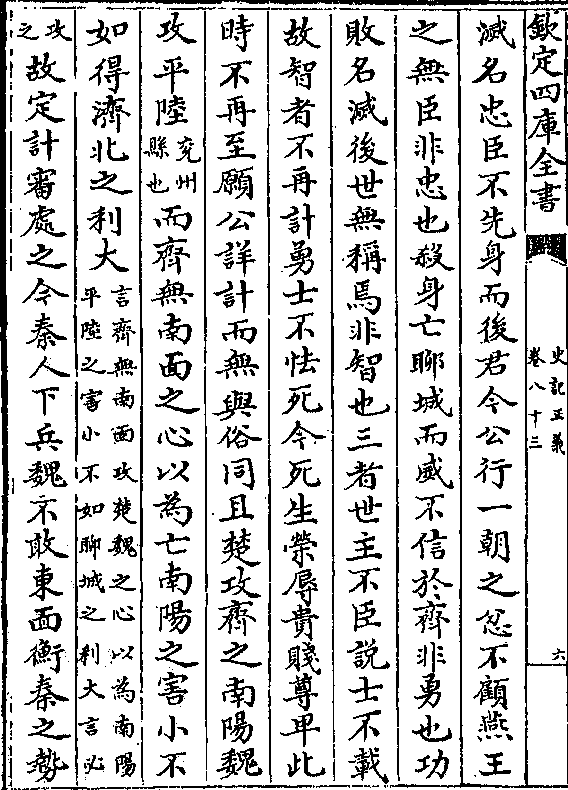 欽定四庫全書
史記正義
卷八十三
六
滅名忠臣不先身而後君今公行一朝之忿不顧燕王
之無臣非忠也殺身亡聊城而威不信於齊非勇也功
敗名滅後世無稱焉非智也三者世主不臣説士不載
故智者不再計勇士不怯死今死生榮辱貴賤尊卑此
時不再至願公詳計而無與俗同且楚攻齊之南陽魏
攻平陸兗州縣也而齊無南面之心以為亡南陽之害小不
如得濟北之利大言齊無南面攻楚魏之心以為南陽平陸之害小不如聊城之利大言必
攻之故定計審處之今秦人下兵魏不敢東面衡秦之勢